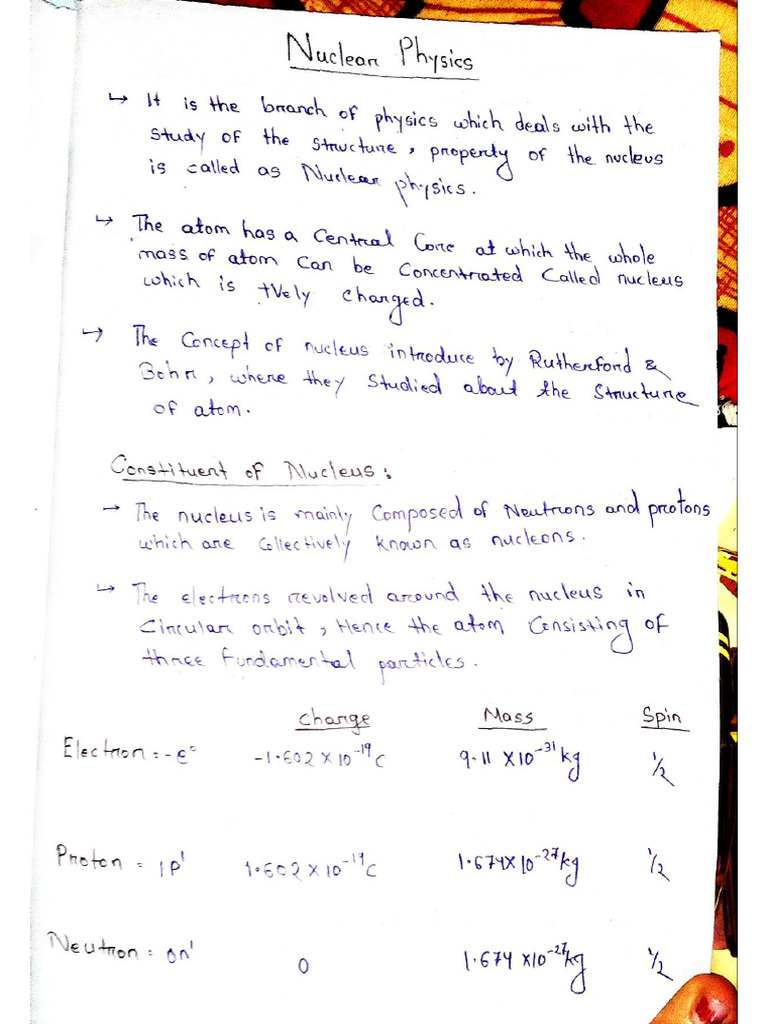 Nuclear Physics
↳ It is the branch of physics which deals with the
study of the structure, property of the nucleus
is called as Nuclear physics.
↳ The atom has a Central Core at which the whole
mass of atom can be Concentrated Called nucleus
which is +Vely charged.
↳ The Concept of nucleus introduce by Rutherford &
Bohr, where they studied about the structure
of atom.
Constituent of Nucleus:
→ The nucleus is mainly Composed of Neutrons and protons
which are Collectively known as nucleons.
↳ The electrons revolved around the nucleus in
Circular orbit, Hence the atom Consisting of
three fundamental particles.
Charge Mass Spin
Electron = -e° -1.602 × 10⁻¹⁹ C 9.11 × 10⁻³¹ kg 1/2
Proton = 1P¹ 1.602 × 10⁻¹⁹ C 1.674 × 10⁻²⁷ kg 1/2
Neutron = 0n¹ 0 1.674 × 10⁻²⁷ kg 1/2